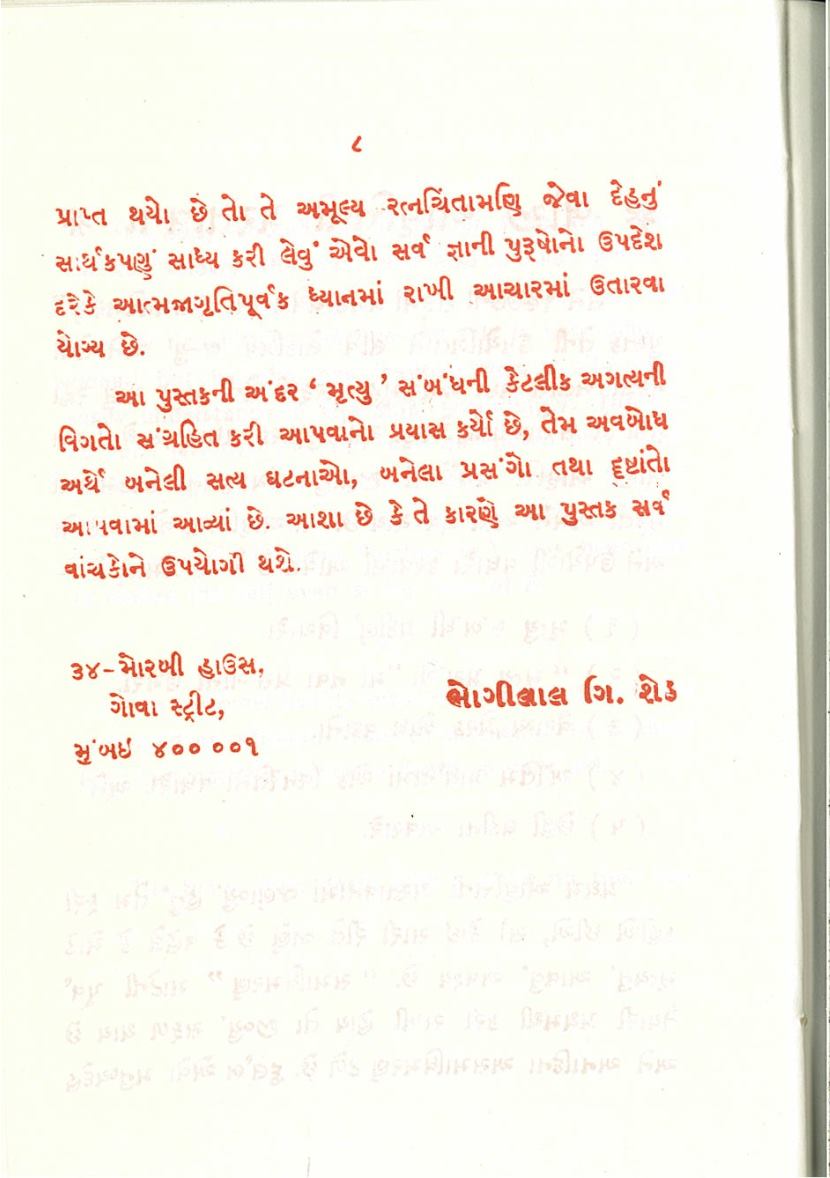 ૮
પ્રાપ્ત થયો છે તો તે અમૂલ્ય રત્નચિંતામણિ જેવા દેહનું
સાર્થકપણું સાધ્ય કરી લેવું એવો સર્વ જ્ઞાની પુરૂષોનો ઉપદેશ
દરેકે આત્મજાગૃતિપૂર્વક ધ્યાનમાં રાખી આચારમાં ઉતારવા
યોગ્ય છે.
આ પુસ્તકની અંદર ‘ મૃત્યુ ’ સંબંધની કેટલીક અગત્યની
વિગતો સંગ્રહિત કરી આપવાનો પ્રયાસ કર્યો છે, તેમ અવબોધ
અર્થે બનેલી સત્ય ઘટનાઓ, બનેલા પ્રસંગો તથા દૃષ્ટાંતો
આપવામાં આવ્યાં છે. આશા છે કે તે કારણે આ પુસ્તક સર્વ
વાંચકોને ઉપયોગી થશે.
૩૪-મોરબી હાઉસ,
ગોવા સ્ટ્રીટ,
મુંબઇ ૪૦૦ ૦૦૧
ભોગીલાલ ગિ. શેઠ